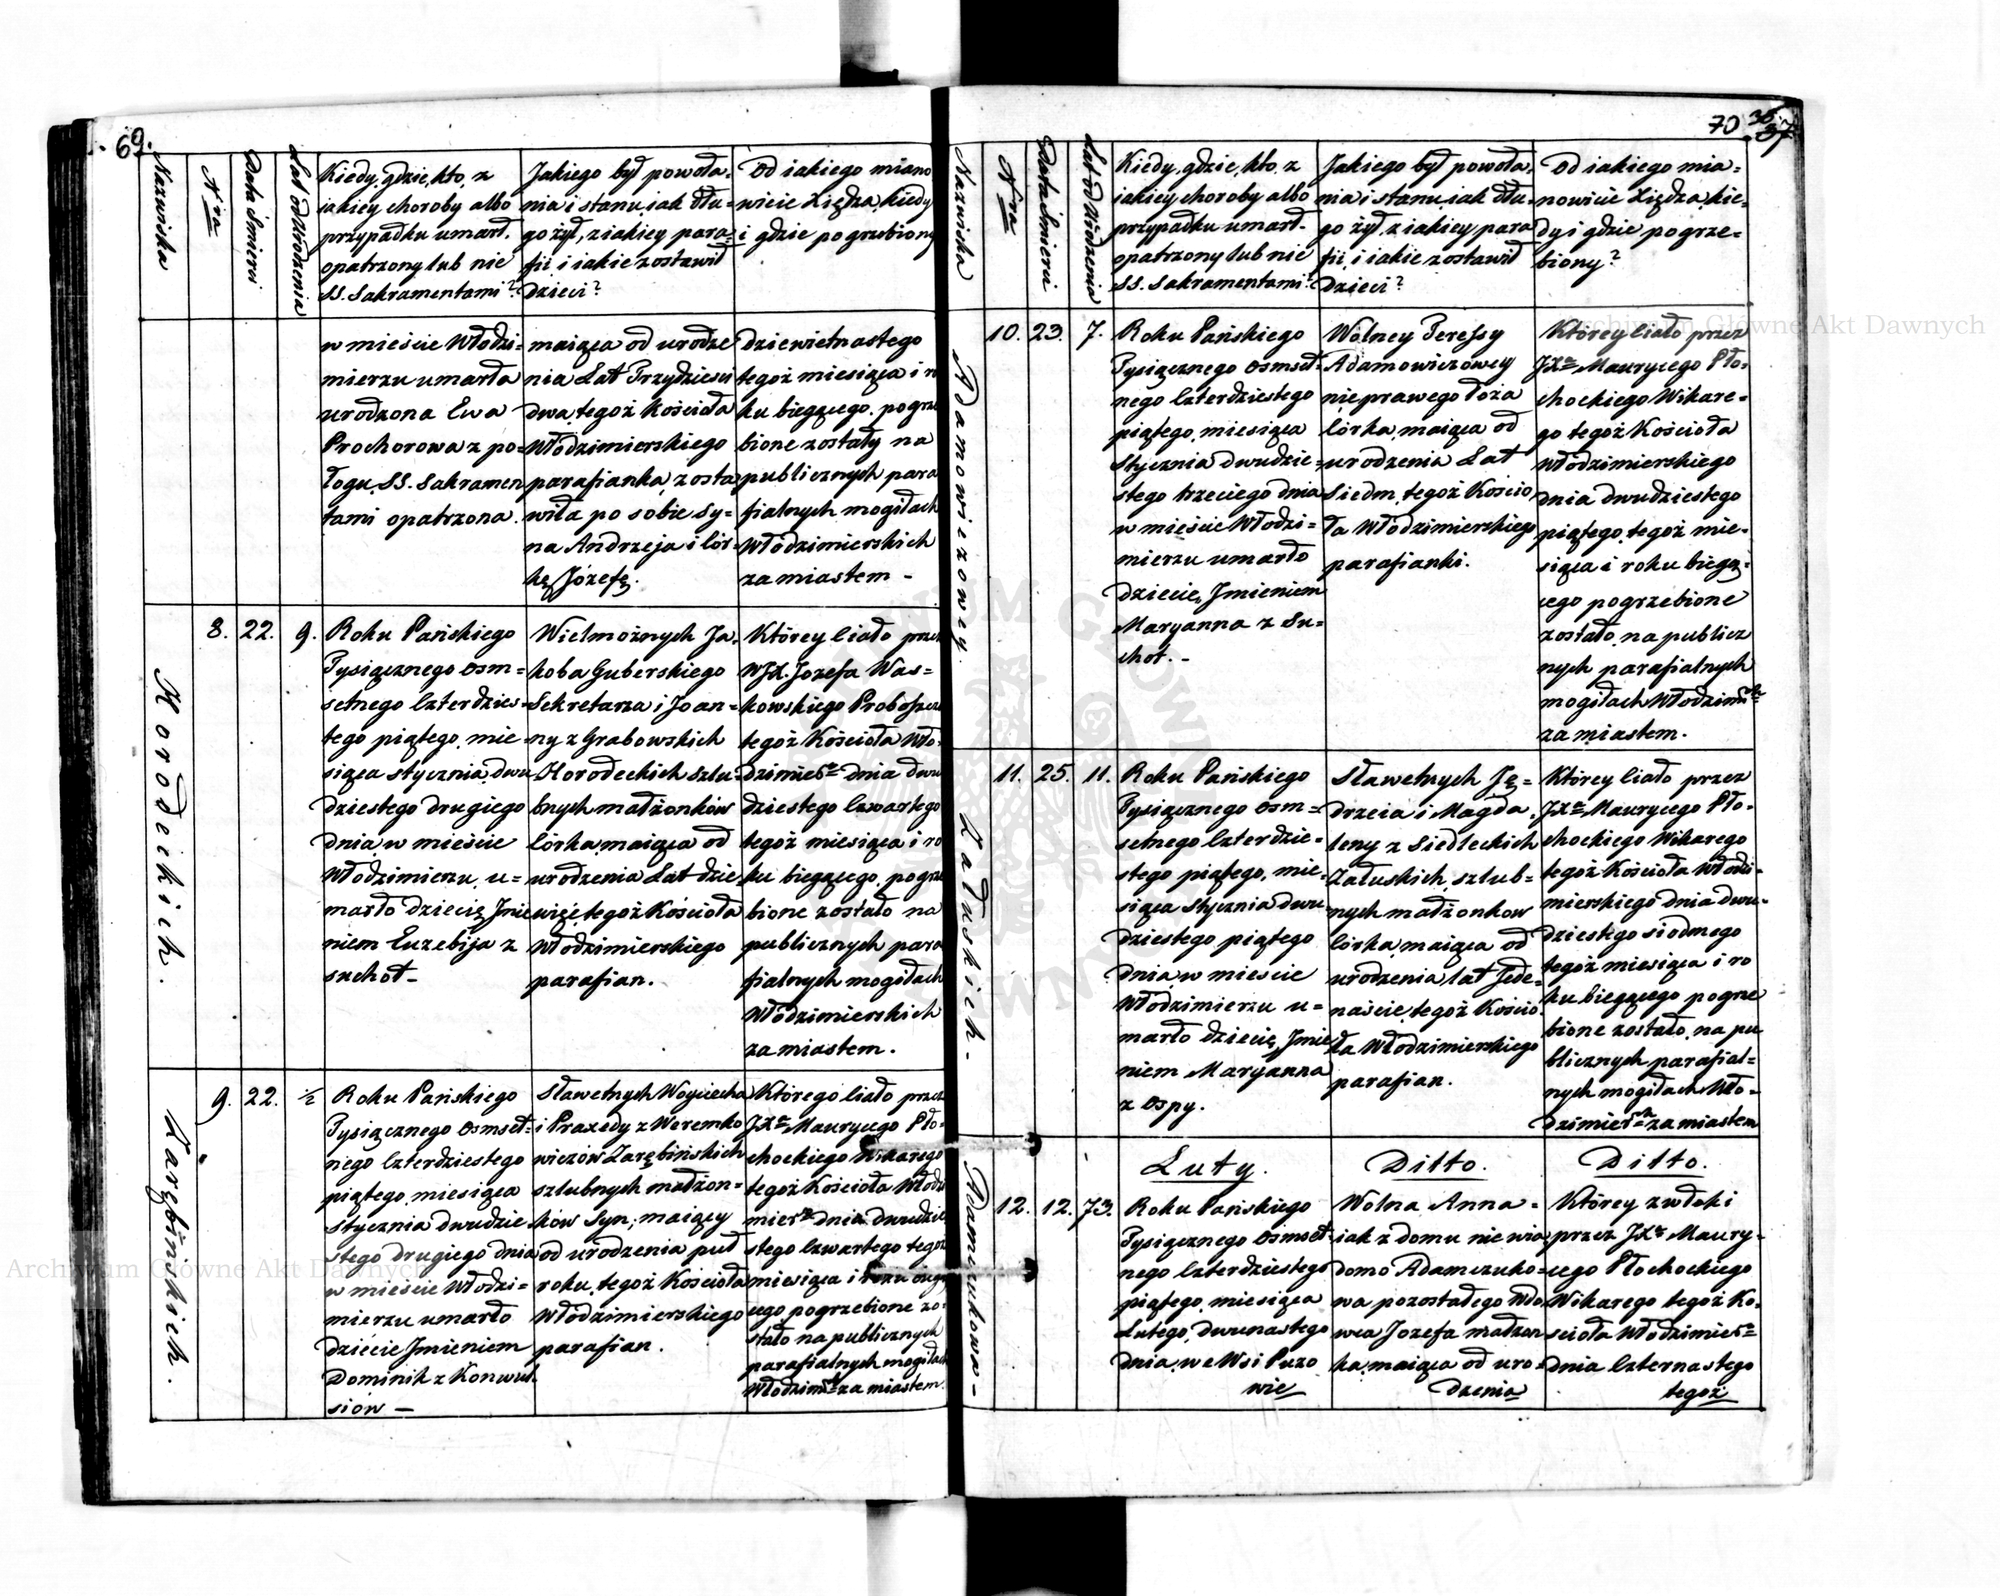 69.
Nazwiska
Nra
Data śmierci
Lat od urodzenia
Kiedy, gdzie, kto, z
iakiey choroby albo
przypadku umarł.
opatrzony lub nie
SS. Sakramentami?
Jakiego był powoła-
nia i stanu, iak dłu-
go żył, z iakiey para-
fii i iakie zostawił
Dzieci?
Od iakiego miano
wicie Xiędza, kiedy
i gdzie pogrzebiony
w mieście Włodzi-
mierzu umarła
urodzona Ewa
Prochorowa z po-
łogu, SS. Sakramen
tami opatrzona.
maiąca od urodze
nia Lat Trzydzieści
dwa, tegoż Kościoła
Włodzimierskiego
parafianka, zosta
wiła po sobie Sy-
na Andrzeja i Cór-
kę Józefę.
dziewietnastego
tegoż miesiąca i ro
ku bieżącego. pogrze
bione zostały na
publicznych para
fialnych mogiłach
Włodzimierskich
za miastem -
Horodeckich.
8. 22. 9.
Roku Pańskiego
Tysiącznego Osm-
setnego Czterdzies-
tego piątego, mie-
siąca stycznia, dwu
dziestego drugiego
dnia, w mieście
Włodzimierzu, u-
marło dziecię Jmie
niem Euzebija z
suchot-
Wielmożnych Ja-
koba Guberskiego
Sekretarza i Joan-
ny z Grabowskich
Horodeckich szlu-
bnych małżonków
Córka, maiąca od
urodzenia Lat dzie
więć, tegoż Kościoła
Włodzimierskiego
parafian.
Którey Ciało przez
WJX. Jozefa Was-
kowskiego Proboszcza
tegoż Kościoła Wło-
dzimierº dnia dwu
dziestego Czwartego
tegoż miesiąca i ro
ku bieżącego, pogrze
bione zostało na
publicznych para
fialnych mogiłach
Włodzimierskich
za miastem.
Zarębińskich.
9. 22. ½
Roku Pańskiego
Tysiącznego Osmset-
nego Czterdziestego
piątego, miesiąca
stycznia dwudzie
stego drugiego dnia
w mieście Włodzi-
mierzu umarło
dziecie Jmieniem
Dominik z Konwul
siów —
Sławetnych Woyciecha
i Praxedy z Weremko
wiczów Zarębińskich
szlubnych małżon-
ków Syn, maiący
od urodzenia puł
roku, tegoż Kościoła
Włodzimierskiego
parafian.
Którego Ciało przez
JXa Maurycego Pło-
chockiego Wikarego
tegoż Kościoła Włodzi
mierº dnia dwudzie
stego Czwartego tegoż
miesiąca i roku bieżą
cego pogrzebione zo-
stało na publicznych
parafialnych mogiłach
Włodzimch za miastem.
70
Nazwiska
Nra
Data śmierci
Lat od Urodzenia
Kiedy, gdzie, kto, z
iakiey choroby albo
przypadku umarł.
opatrzony lub nie
SS. Sakramentami?
Jakiego był powoła-
nia i stanu, iak dłu-
go żył, z iakiey para
fii, i iakie zostawił
Dzieci?
Od iakiego mia-
nowicie Xiędza, kie-
dy i gdzie pogrze-
biony?
Adamowiczowey.
10. 23. 7.
Roku Pańskiego
Tysiącznego Osmset-
nego Czterdziestego
piątego, miesiąca
Stycznia dwudzie-
stego trzeciego dnia
w mieście Włodzi-
mierzu umarło
dziecie, Jmieniem
Maryanna z Su-
chot. -
Wolney Teressy
Adamowiczowey
nieprawego łoża
Córka, maiąca od
urodzenia Lat
Siedm, tegoż Koscio
ła Włodzimierskiego
parafianki.
Którey Ciało przez
JXa Maurycego Pło-
chockiego Wikare-
go tegoż Kościoła
Włodzimierskiego
dnia dwudziestego
piątego, tegoż mie-
siąca i roku bieżą-
cego pogrzebione
zostało, na publicz
nych parafialnych
mogiłach Włodzimch
za miastem.
Załuskich.
11. 25. 11.
Roku Pańskiego
Tysiącznego Osm-
setnego Czterdzie-
stego piątego, mie-
siąca stycznia dwu
dziestego piątego
dnia, w mieście
Włodzimierzu u-
marło dziecię, Jmie
niem Maryanna
z Ospy.
Sławetnych Ję-
drzeia i Magda-
leny z Siedleckich
Załuskich, szlub-
nych małżonkow
Córka, maiąca od
urodzenia lat Jede-
naście, tegoż Kościo
ła Włodzimierskiego
parafian.
Którey Ciało przez
JXa Maurycego Pło-
chockiego Wikarego
tegoż Kościoła Włodzi-
mierskiego dnia dwu-
dziestego siodmego
tegoż miesiąca i ro
ku bieżącego pogrze
bione zostało, na pu
blicznych parafial-
nych mogiłach Wło-
dzimierch za miastem
Luty.
Ditto.
Ditto.
Adamczukowa-
12. 12. 73.
Roku Pańskiego
Tysiącznego Osmset-
nego Czterdziestego
piątego, miesiąca
Lutego, dwunastego
dnia, we Wsi Puzo
wie
Wolna Anna -
iak z domu nie wia
domo Adamczuko-
wa pozostałego Wdo
wca Jozefa małżon
ka, maiąca od uro-
dzenia
Którey zwłoki
przez JXa Maury-
cego Płochockiego
Wikarego tegoż Ko-
ścioła Włodzimierº
dnia Czternastego
tegoż
Archiwum Główne Akt Dawnych
Archiwum Główne Akt Dawnych